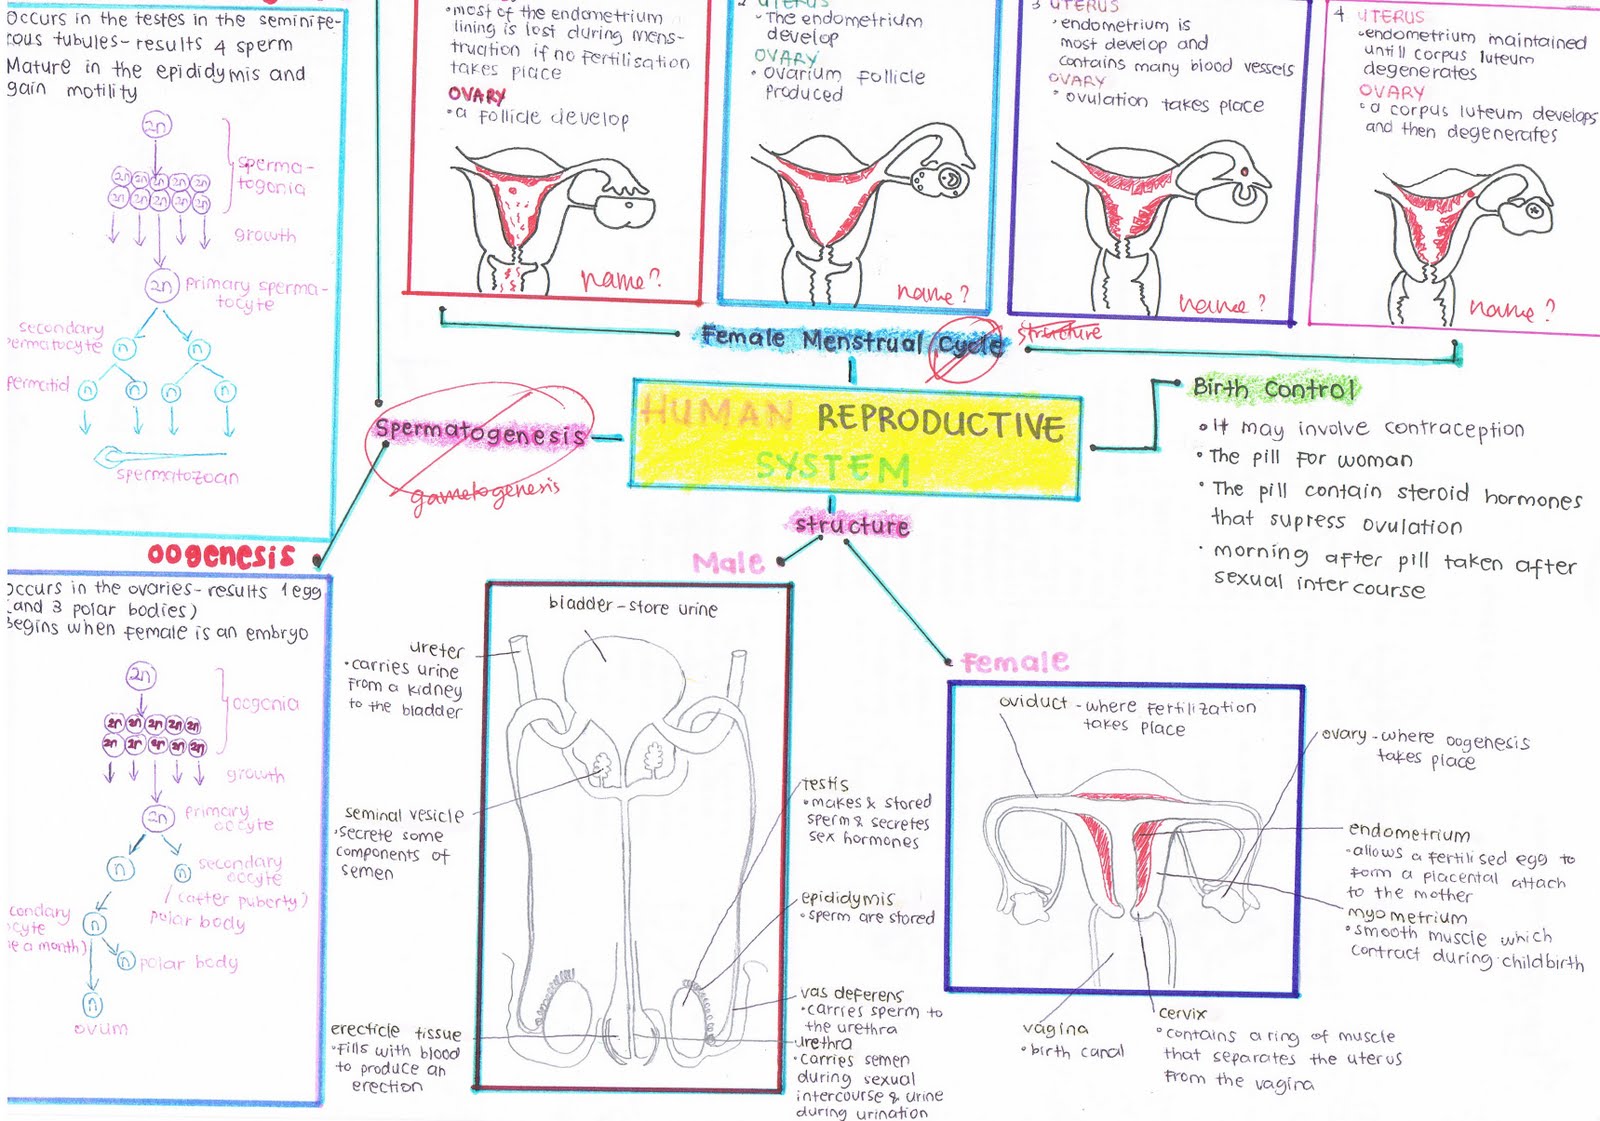 Occurs in the testes in the seminife-
rous tubules- results 4 sperm
Mature in the epididymis and
gain motility
2n
2n 2n 2n 2n 2n
2n 2n 2n 2n 2n
sperma-
togonia
growth
2n
primary sperma-
tocyte
secondary
ermatocyte
n n
permatid
n n n n
spermatozoan
• most of the endometrium
lining is lost during mens-
truation if no fertilisation
takes place
OVARY
• a follicle develop
name?
2 UTERUS
• The endometrium
develop
OVARY
• ovarium follicle
produced
name?
3 UTERUS
• endometrium is
most develop and
contains many blood vessels
OVARY
• ovulation takes place
name?
4 UTERUS
• endometrium maintained
untill corpus luteum
degenerates
OVARY
• a corpus luteum develops
and then degenerates
name?
Female Menstrual Cycle structure
Spermatogenesis
gametogenesis
HUMAN REPRODUCTIVE
SYSTEM
Birth Control
• It may involve contraception
• The pill for woman
• The pill contain steroid hormones
that supress ovulation
• morning after pill taken after
sexual intercourse
oogenesis
Occurs in the ovaries- results 1 egg
(and 3 polar bodies)
Begins when female is an embryo
2n
2n 2n 2n 2n 2n
2n 2n 2n 2n 2n
oogonia
growth
2n
primary
oocyte
n n
secondary
oocyte
(after puberty)
polar body
condary
ocyte
e a month)
n
n polar body
n
ovum
structure
Male
bladder - store urine
ureter
• carries urine
from a kidney
to the bladder
seminal vesicle
• secrete some
components of
semen
erecticle tissue
• fills with blood
to produce an
erection
testis
• makes & stored
sperm & secretes
sex hormones
epididymis
• sperm are stored
vas deferens
• carries sperm to
the urethra
urethra
• carries semen
during sexual
intercourse & urine
during urination
Female
oviduct - where fertilization
takes place
ovary - where oogenesis
takes place
endometrium
• allows a fertilised egg to
form a placental attach
to the mother
myometrium
• smooth muscle which
contract during childbirth
vagina
• birth canal
cervix
• contains a ring of muscle
that separates the uterus
from the vagina